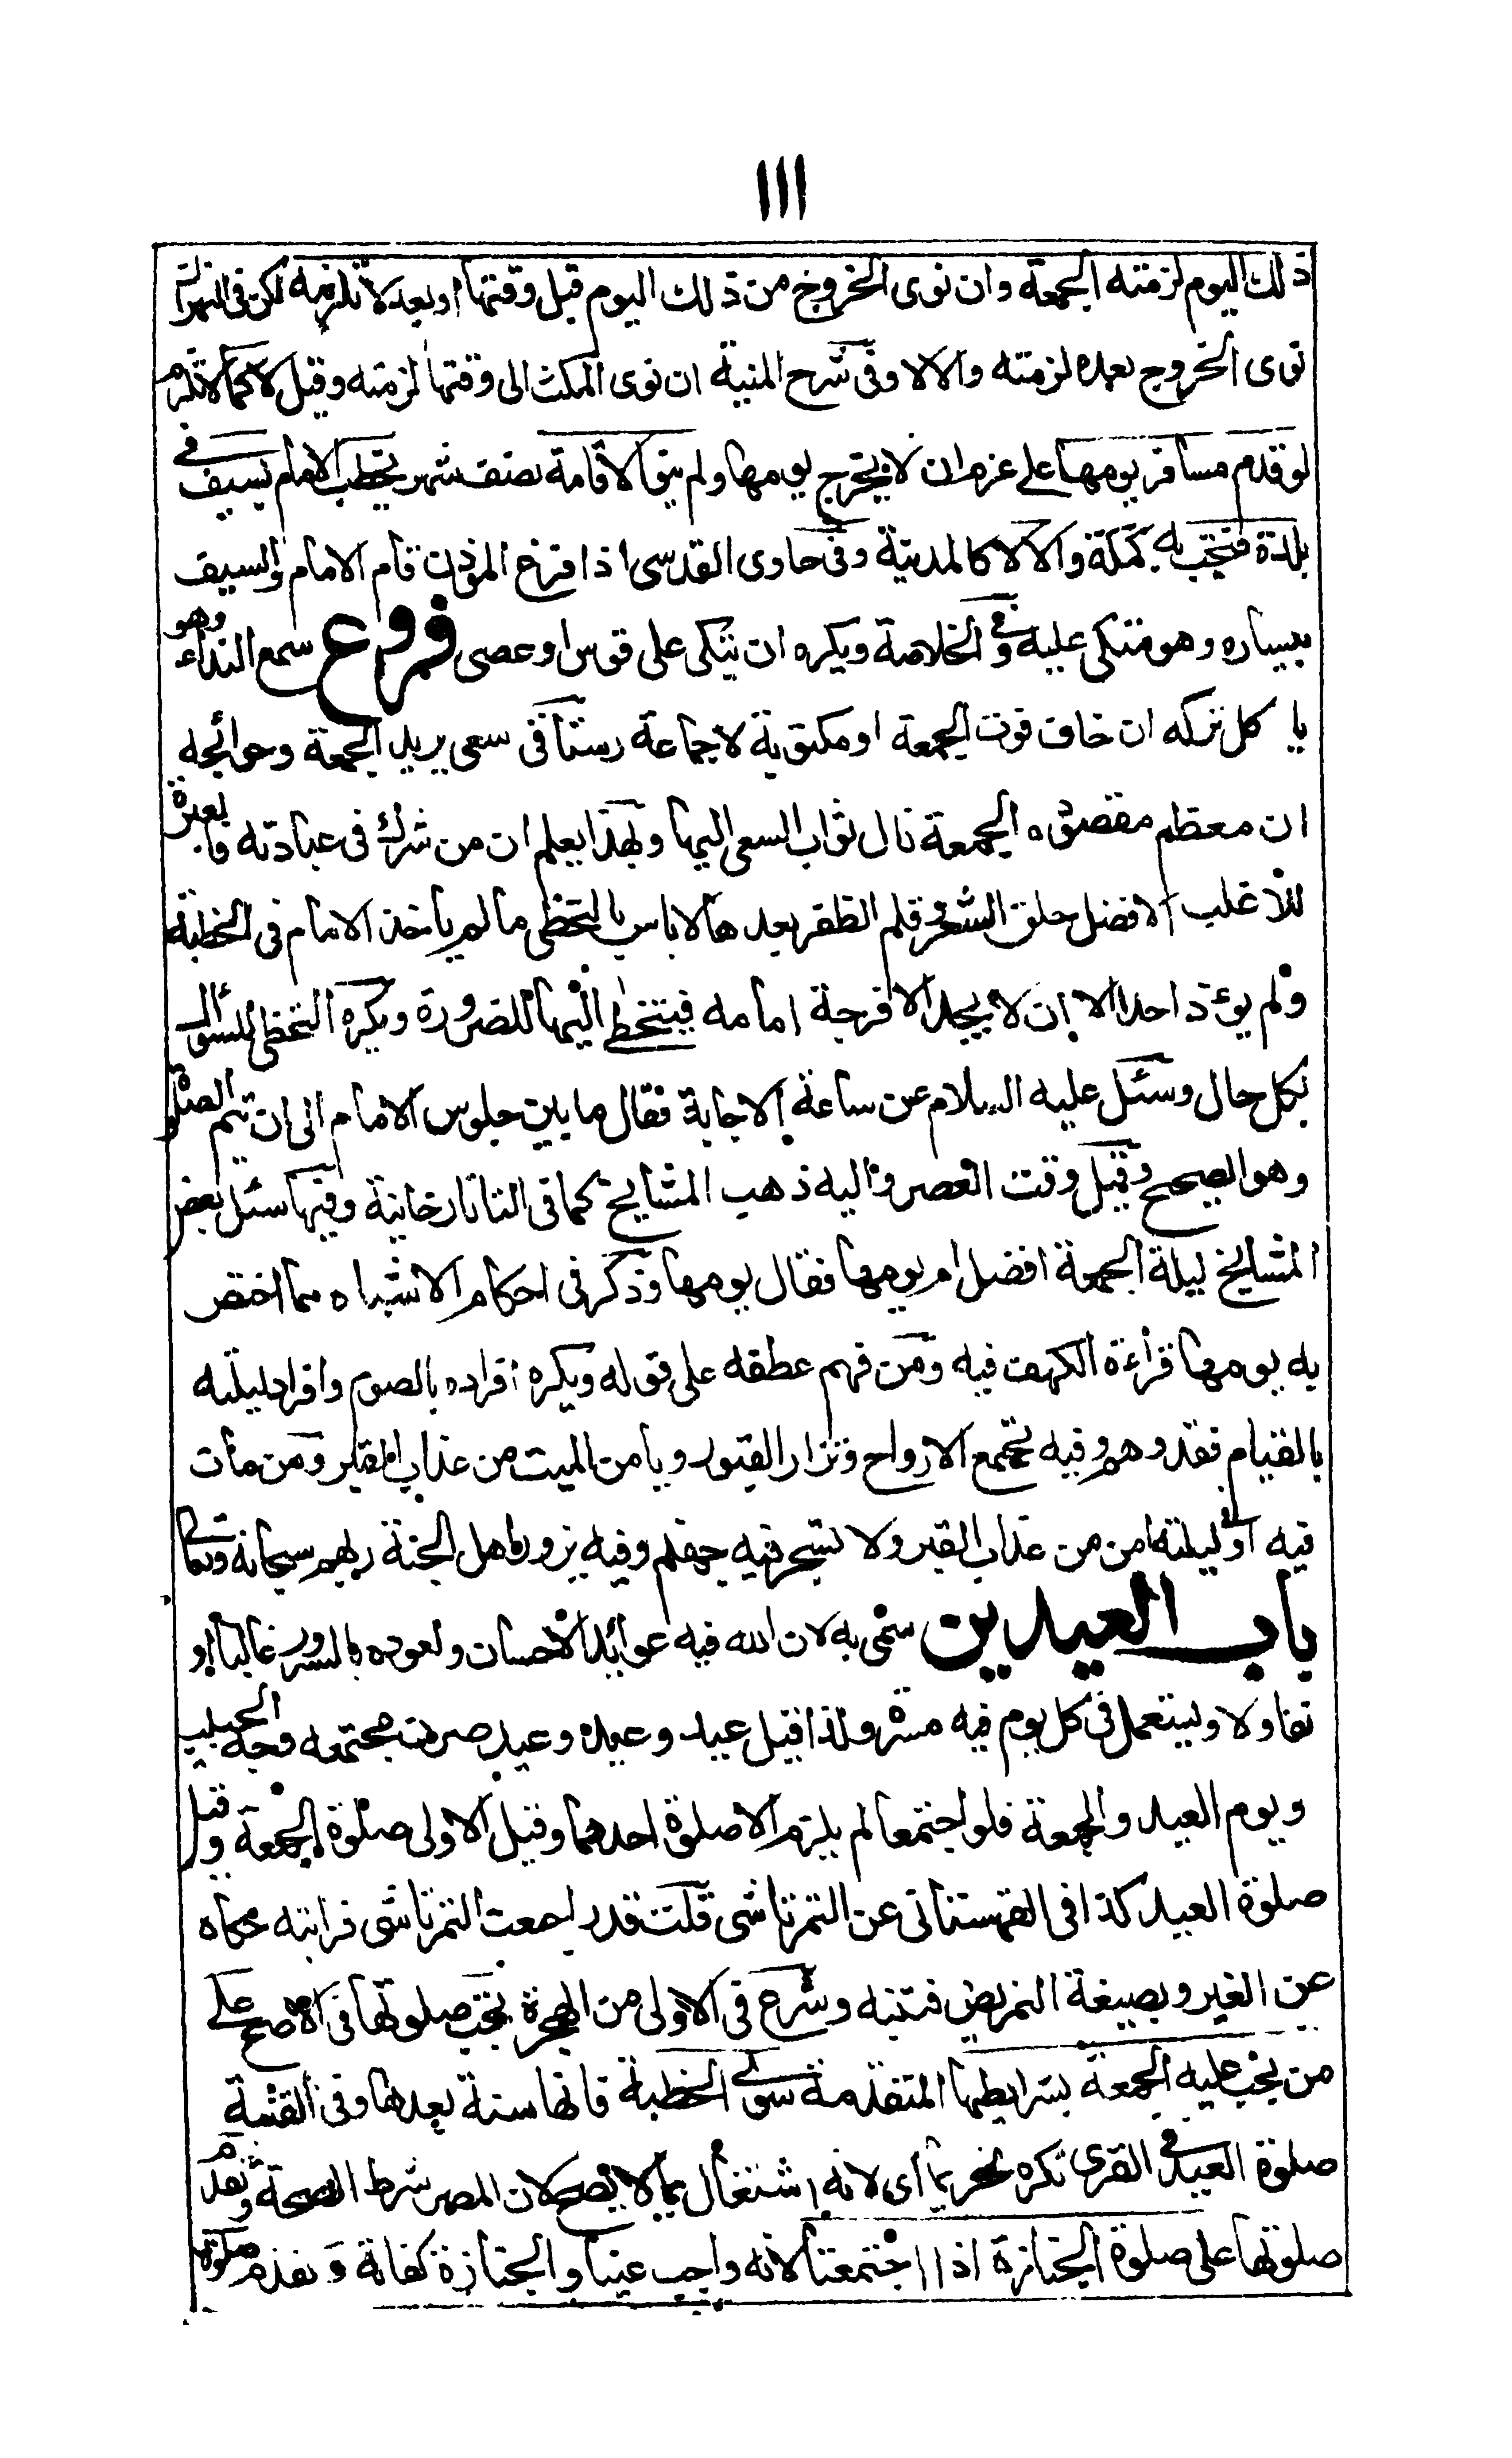 ١١١
ذلك اليوم لزمته الجمعة وان نوى الخروج من ذلك اليوم قبل وقتها او بعده لا تلزمه لكن فى النهر ان
نوى الخروج بعده لزمته والا لا وفى شرح المنية ان نوى المكث الى وقتها لزمته وقيل لا كما لا تلزم
لو قدم مسافر يومها على عزم ان لا يخرج يومها ولم ينو الاقامة نصف شهر يخطب الامام بسيف فى
بلدة فتحت به كمكة والا لا كالمدينة وفى حاوى القدسى اذا فرغ المؤذن قام الامام والسيف
بيساره وهو متكى عليه وفى الخلاصة ويكره ان يتكى على قوس او عصى فروع سمع النداء وهو
ياكل تركه ان خاف فوت الجمعة او مكتوبة لا جماعة رستاقى سعى يريد الجمعة وحوائجه
ان معظم مقصوده الجمعة نال ثواب السعى اليها وبهذا يعلم ان من شرك فى عبادته فالعبرة
للاغلب الافضل حلق الشعر وقلم الظفر بعدها لا باس بالتخطى ما لم ياخذ الامام فى الخطبة
ولم يؤذ احدا الا ان لا يجد الا فرجة امامه فيتخطى اليها للضرورة ويكره التخطى للسؤال
بكل حال وسئل عليه السلام عن ساعة الاجابة فقال ما بين جلوس الامام الى ان يتم الصلوة
وهو الصحيح وقيل وقت العصر واليه ذهب المشايخ كما فى التاتارخانية وفيها سئل بعض
المشايخ ليلة الجمعة افضل ام يومها فقال يومها وذكر فى احكام الاشباه مما اختص
به يومها قراءة الكهف فيه ومن فهم عطفه على قوله ويكره افراده بالصوم وافراد ليلته
بالقيام فقد وهم وفيه تجتمع الارواح وتزار القبور ويامن الميت من عذاب القبر ومن مات
فيه او فى ليلته امن من عذاب القبر ولا تسجر فيه جهنم وفيه يزور اهل الجنة ربهم سبحانه وتعالى
باب العيدين سمى به لان لله فيه عوائد الاحسان ولعوده بالسرور غالبا او
تفاولا ويستعمل فى كل يوم فيه مسرة ولذا قيل عيد وعيد وعيد صرن مجتمعه وجه الحبيب
ويوم العيد والجمعة فلو اجتمعا لم يلزم الا صلوة احدهما وقيل الاولى صلوة الجمعة وقيل
صلوة العيد كذا فى القهستانى عن التمرتاشى قلت قد راجعت التمرتاشى فرايته حكاه
عن الغير وبصيغة التمريض فتنبه وشرع فى الاولى من الهجرة تجب صلوتهما فى الاصح على
من تجب عليه الجمعة بشرايطها المتقدمة سوى الخطبة فانها سنة بعدها وفى القنية
صلوة العيد فى القرى تكره تحريما اى لانه اشتغال بما لا يصح لان المصر شرط الصحة وتقدم
صلوتها على صلوة الجنازة اذا اجتمعتا لانه واجب عينا والجنازة كفاية وتقدم صلوة